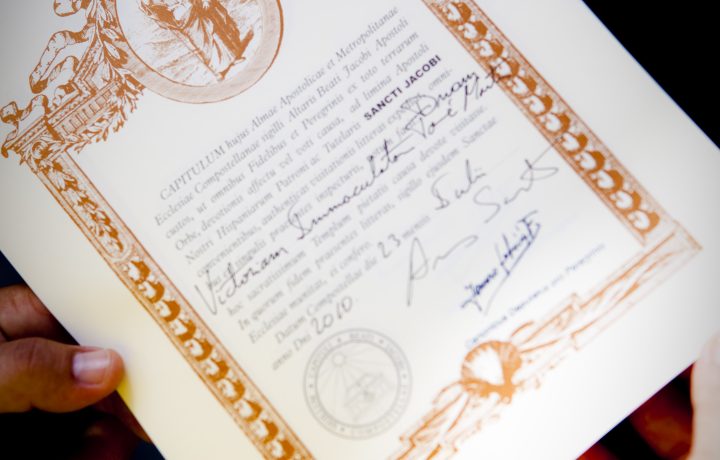 CAPITULUM hujus Almae Apostolicae et Metropolitanae
Ecclesiae Compostellanae sigilli Altaris Beati Jacobi Apostoli
custos, ut omnibus Fidelibus et Peregrinis ex toto terrarum
Orbe, devotionis affectu vel voti causa, ad limina Apostoli
Nostri Hispaniarum Patroni ac Tutelaris SANCTI JACOBI
convenientibus, authenticas visitationis litteras expediat, omni-
bus et singulis praesentes inspecturis, notum facit: Dnam
Victoriam Immaculatam José
hoc sacratissimum Templum pietatis causa devote visitasse.
In quorum fidem praesentes litteras, sigillo ejusdem Sanctae
Ecclesiae munitas, ei confero.
Datum Compostellae die 23 mensis Julii
anno Dni 2010
Ano Santo
Canonicus Deputatus pro Peregrinis